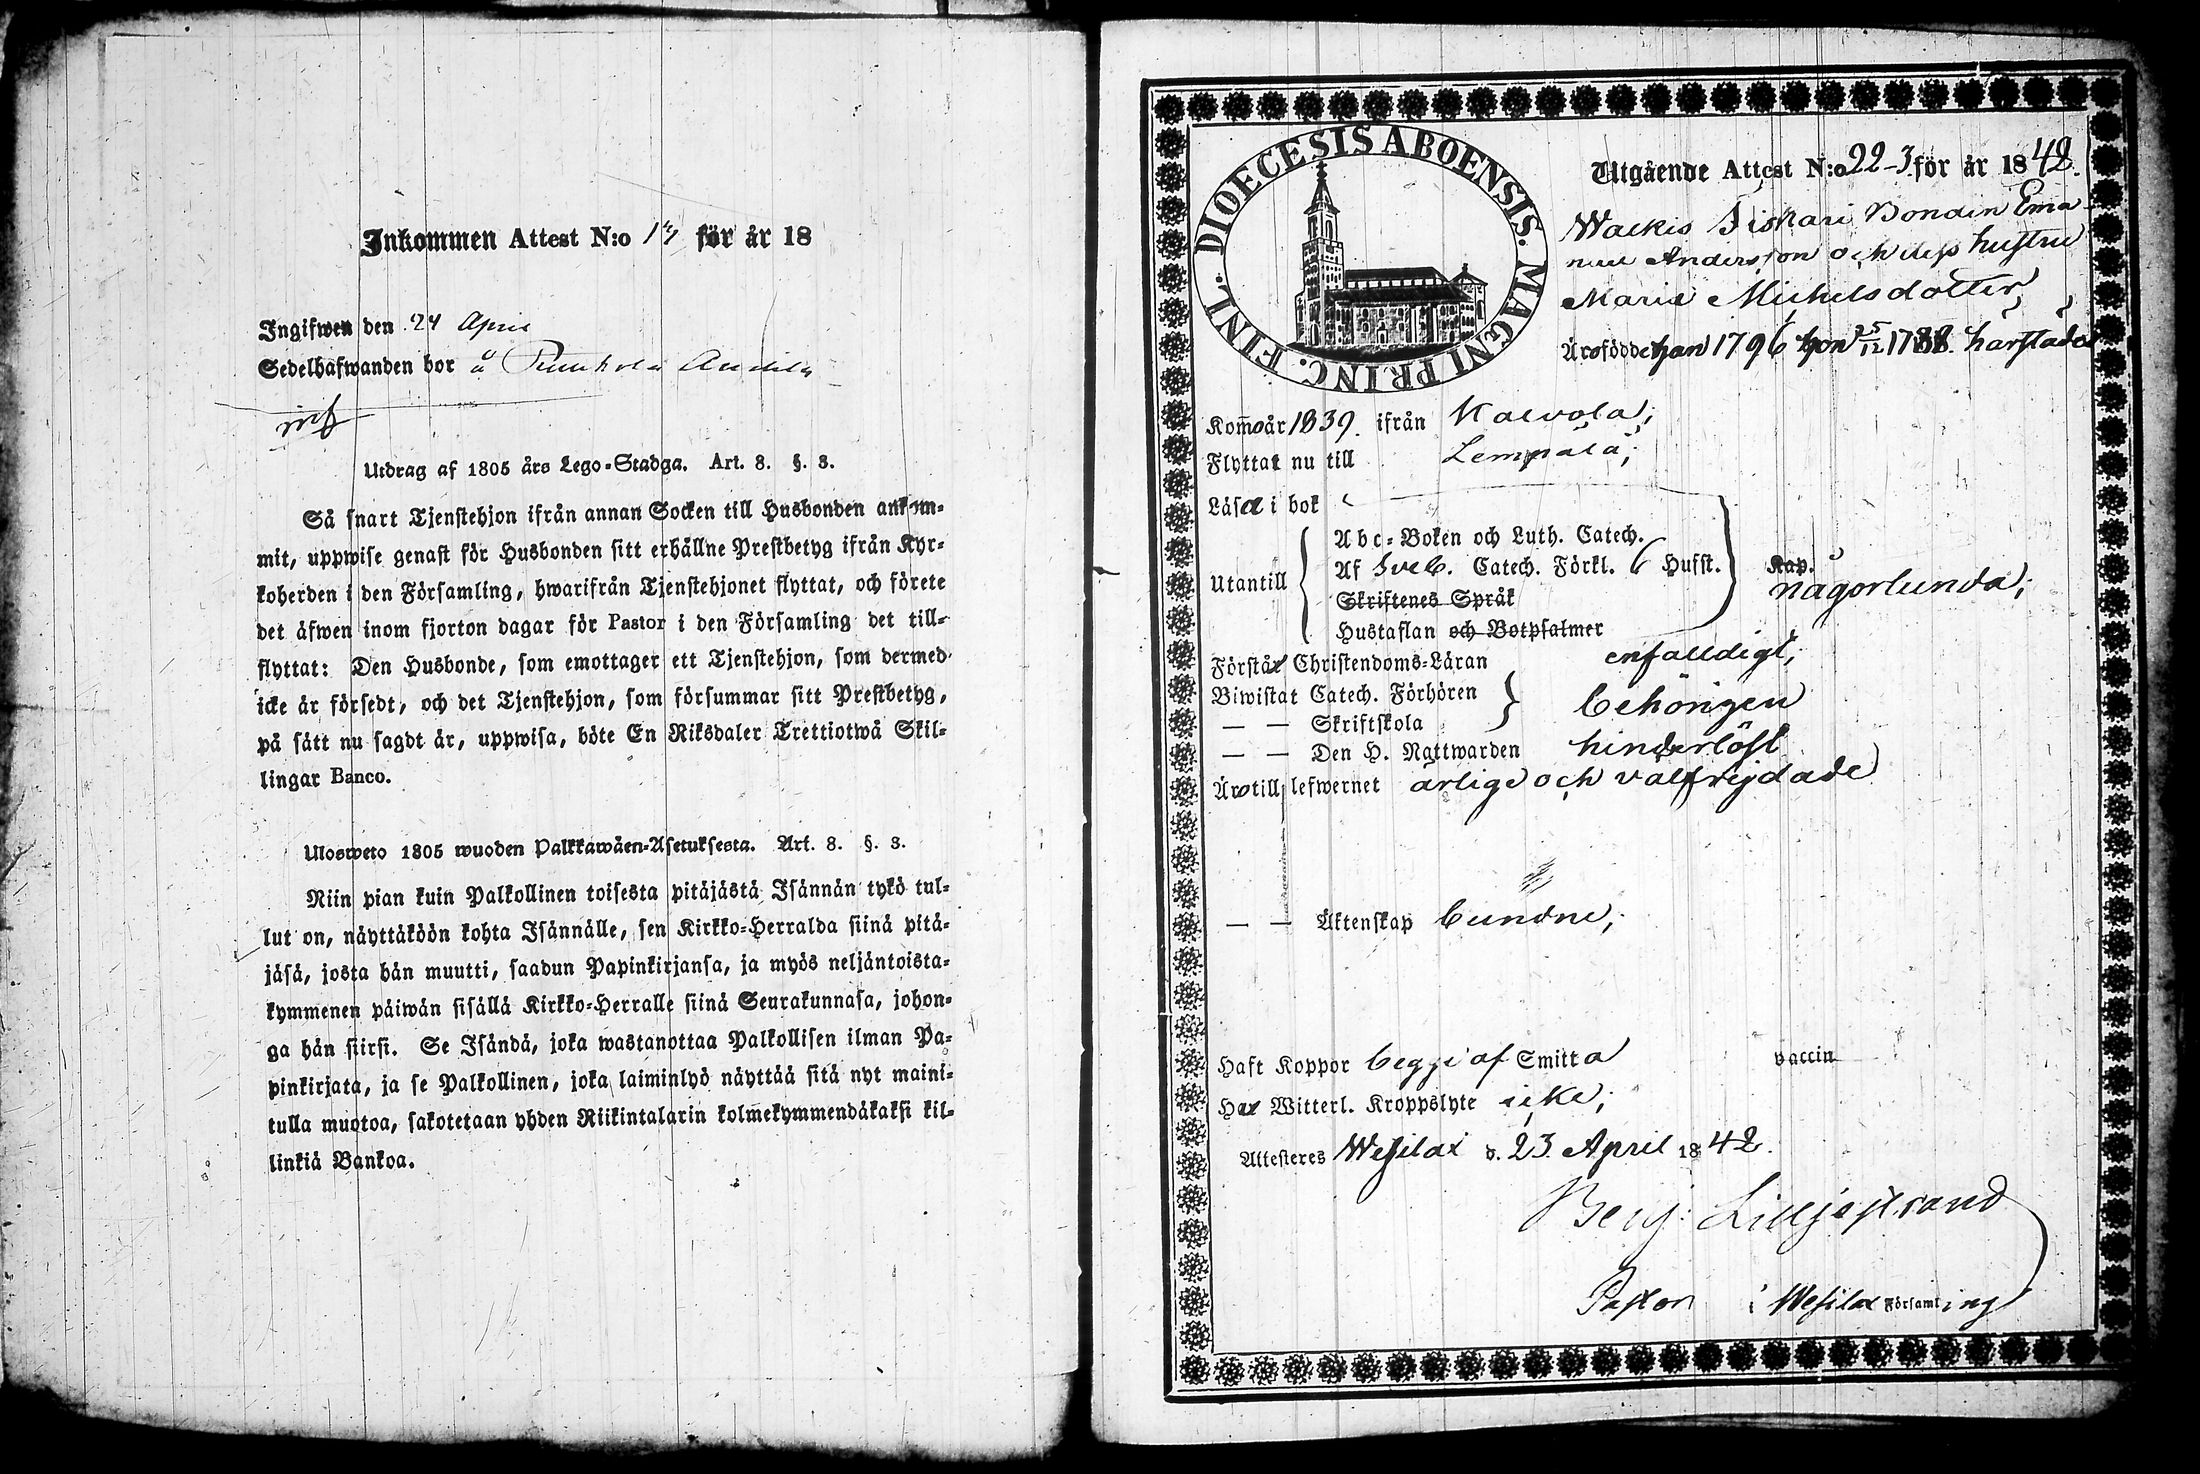 Inkommen Attest N:o 14 för år 18
Ingifwen den 24 April
Sedelhafwanden bor å
Utdrag af 1805 års Lego-Stadga. Art. 8. §. 3.
Så snart Tjenstehjon ifrån annan Socken till Husbonden ankom-
mit, uppwise genast för Husbonden sitt erhållne Prestbetyg ifrån Kyr-
koherden i den Församling, hwarifrån Tjenstehjonet flyttat, och förete
det äfwen inom fjorton dagar för Pastor i den Församling det till-
flyttat: Den Husbonde, som emottager ett Tjenstehjon, som dermed
icke är försedt, och det Tjenstehjon, som försummar sitt Prestbetyg,
på sätt nu sagdt är, uppwisa, böte En Riksdaler Trettiotwå Skil-
lingar Banco.
Ulosweto 1805 wuoden Palkkawäen-Asetuksesta. Art. 8. §. 3.
Niin pian kuin Palkollinen toisesta pitäjästä Isännän tykö tul-
lut on, näyttäköön kohta Isännälle, sen Kirkko-Herralda siinä pitä-
jäsä, josta hän muutti, saadun Papinkirjansa, ja myös neljäntoista-
kymmenen päiwän sisällä Kirkko-Herralle siinä Seurakunnasa, johon-
ga hän siirsi. Se Isändä, joka wastanottaa Palkollisen ilman Pa-
pinkirjata, ja se Palkollinen, joka laiminlyö näyttää sitä nyt maini-
tulla muotoa, sakotetaan yhden Riikintalarin kolmekymmendäkaksi kil-
linkiä Bankoa.
DIOECESIS ABOENSIS. MAGNI PRINC. FINL.
Utgående Attest N:o 22-3 för år 1842.
Wackis Fiskari Bonden Ema-
nuel Andersson och dess hustru
Maria Michelsdotter,
Äro födde han 1796 hon 25/12 1788. härstädes
Kom̄o år 1839. ifrån Kalvola;
Flyttat nu till Lempälä;
Läsa i bok
Abc-Boken och Luth. Catech.
Utantill Af Sveb. Catech. Förkl. 6 Hufst. Kap. någorlunda;
Skriftenes Språk
Hustaflan och Botpsalmer
Förstår Christendoms-Läran enfalldigt;
Biwistat Catech. Förhören behörigen
— — Skriftskola
— — Den H. Nattwarden hinderlöst
Äro till lefwernet ärlige och välfrejdade
— — Äktenskap bundne;
Haft Koppor begge af Smitta vaccin
Har Witterl. Kroppslyte icke;
Attesteres Wesilax d. 23 April 1842.
Benj: Liljestrand
Pastor i Wesilax Församling